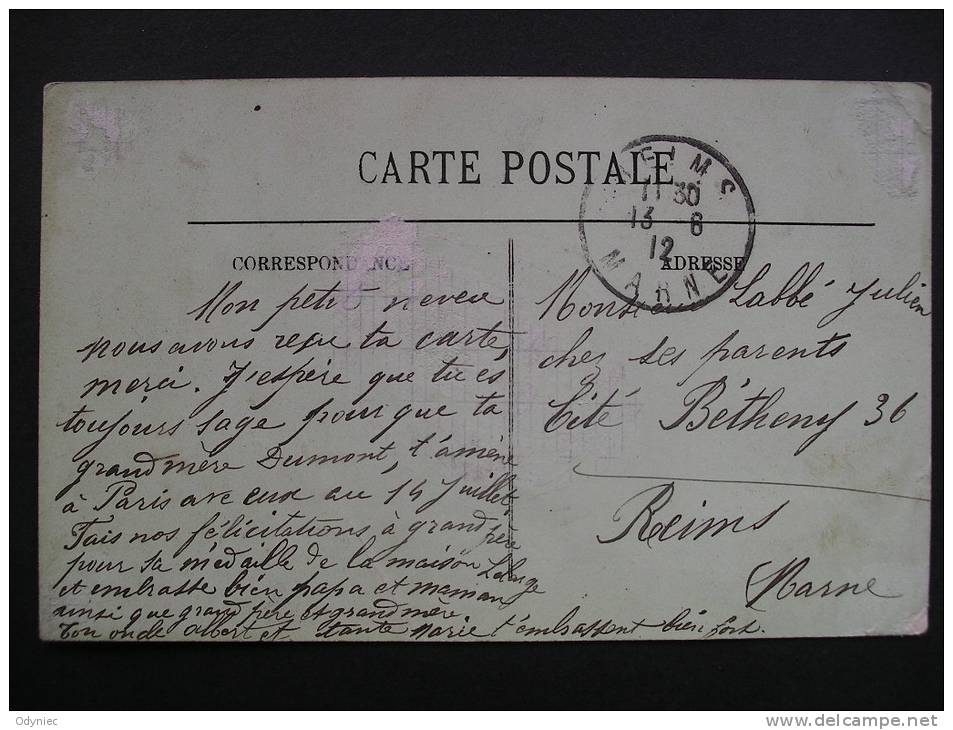 CARTE POSTALE
REIMS
11 30
13 6
12
MARNE
CORRESPONDANCE
ADRESSE
Mon petit neveu
nous avons reçu ta carte,
merci. J'espère que tu es
toujours sage pour que ta
grandmère Dumont, t'amène
à Paris avec eux au 14 Juillet
Fais nos félicitations à grand père
pour sa médaille de la maison
et embrasse bien papa et maman
ainsi que grand père et grandmère
Ton oncle albert et tante Marie t'embrassent bien fort.
Monsieur Labbé Julien
chez ses parents
Cité Bétheny 36
Reims
Marne
Odyniec
www.delcampe.net